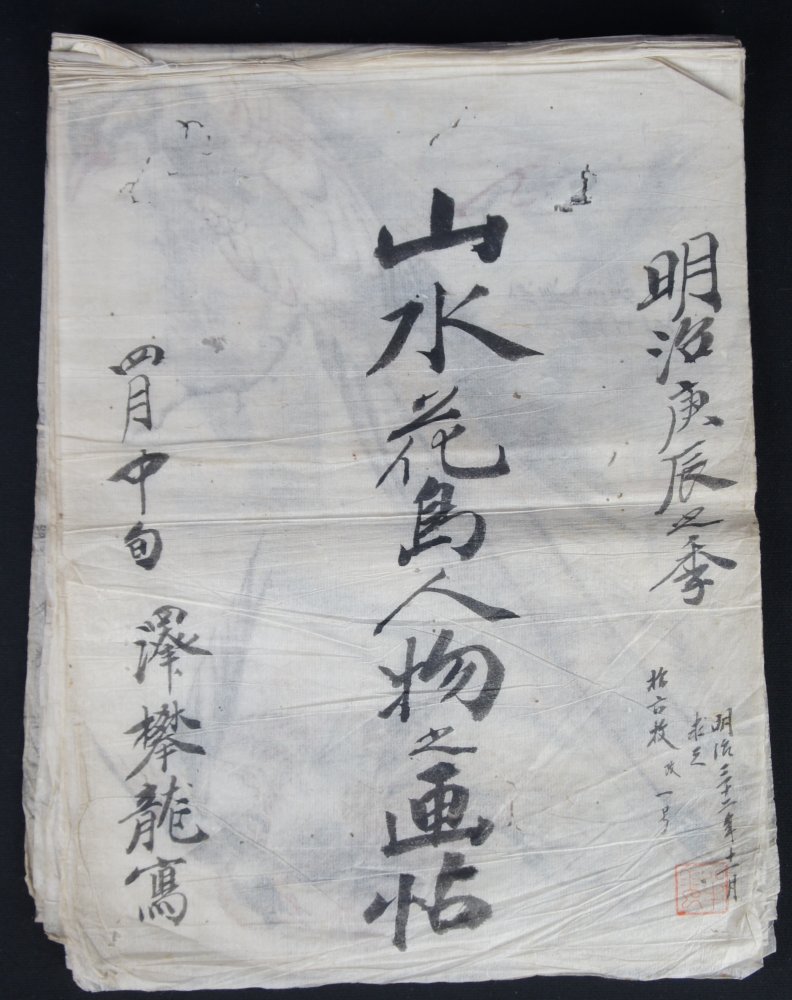 明治庚辰之季
明治三十二年十一月
求之
拾六枚 改 一号
山水花鳥人物之画帖
四月中旬 澤攀龍寫